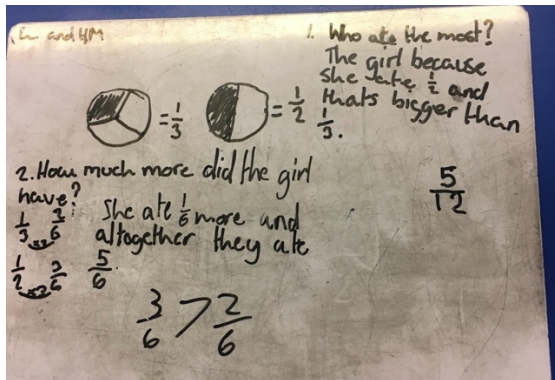 and HM
1. Who ate the most?
The girl because
she ate 1/2 and
thats bigger than
1/3.
= 1/3
= 1/2
2. How much more did the girl
have?
She ate 1/6 more and
altogether they ate
5/6.
1/3 2/6
×2
1/2 3/6
×3
3/6 > 2/6
5/12